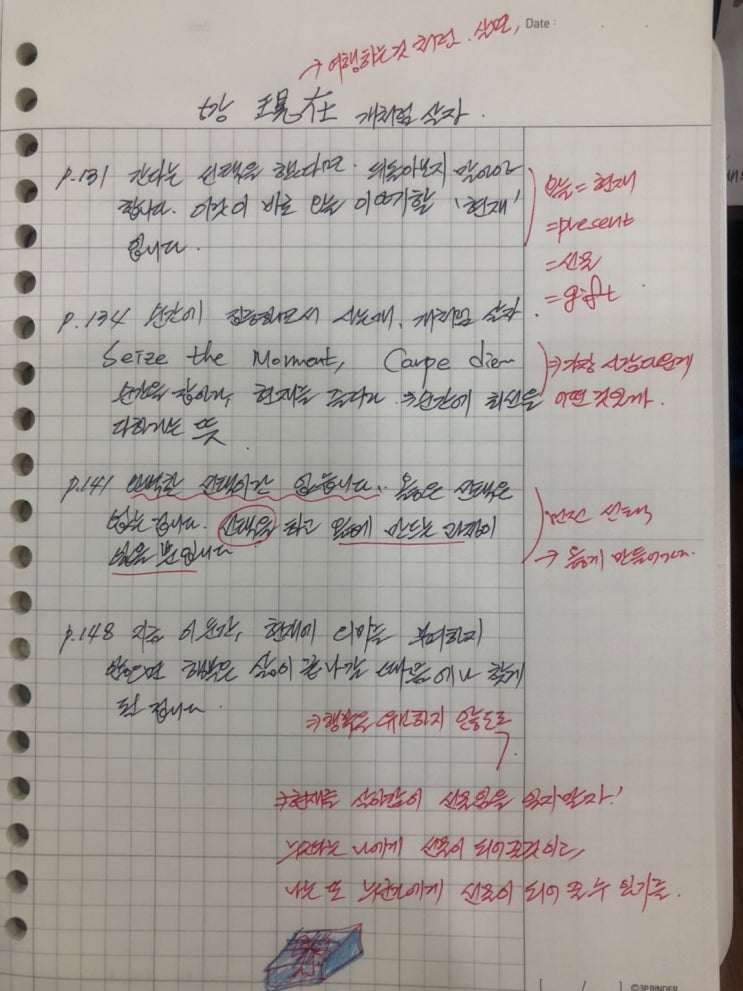 Date :
→ 여행하는것 처럼. 살면,
6강 現在 개처럼 살자.
p.131 간다는 선택을 했다면. 뒤돌아보지 말아야
합니다. 이것이 바로 오늘 이야기할 '현재'
입니다.
오늘 = 현재
= present
= 선물
= gift
p.134 순간에 집중하면서 사는 개. 개처럼 살자.
Seize the Moment, Carpe diem
순간을 잡아라, 현재를 즐겨라 ⇒ 순간에 최선을
다하라는 뜻
어떤 것일까.
p.141 완벽한 선택이란 없습니다. 옳은 선택은
없는 겁니다. 선택을 하고 옳게 만드는 과정이
있을 뿐입니다.
먼저 선택
→ 옳게 만들어가자.
p.148 지금 이 순간, 현재에 의미를 부여하지
않으면 행복은 삶이 끝나갈 때쯤에나 찾게
될 겁니다.
⇒ 행복을 유보하지 않도록
⇒ 현재를 살아감이 선물임을 잊지말자!
누군가는 나에게 선물이 되어줄것이고,
나는 또 누군가에게 선물이 되어 줄 수 있기를.
[ / ] ©3P BINDER